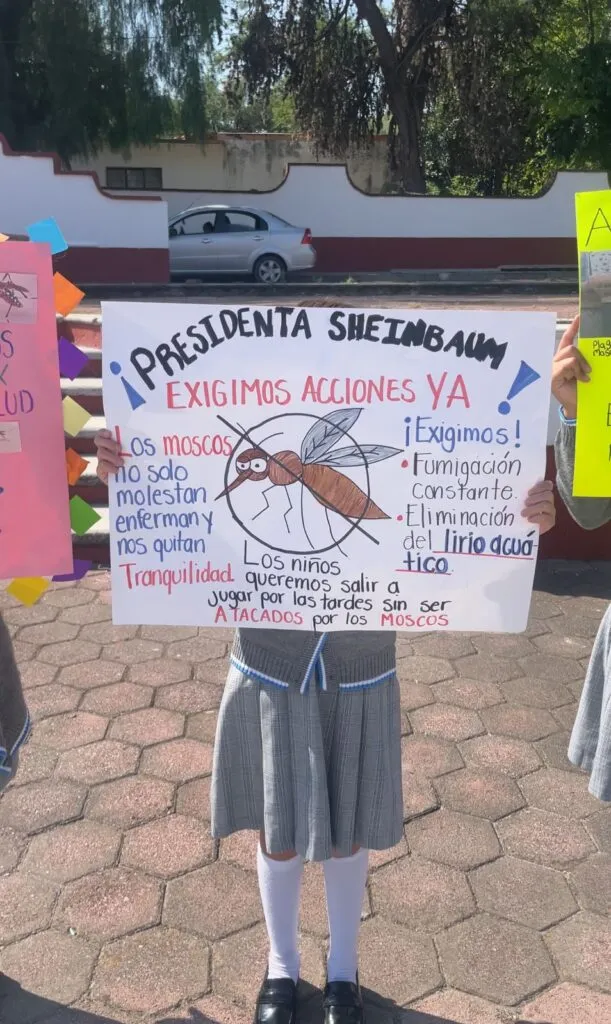 ¡PRESIDENTA SHEINBAUM!
EXIGIMOS ACCIONES YA
LOS MOSCOS
no solo
molestan
enferman y
nos quitan
Tranquilidad
¡Exigimos!
• Fumigación
constante.
• Eliminación
del lirio acuá-
tico.
Los niños
queremos salir a
jugar por las tardes sin ser
ATACADOS por los MOSCOS
UD
A